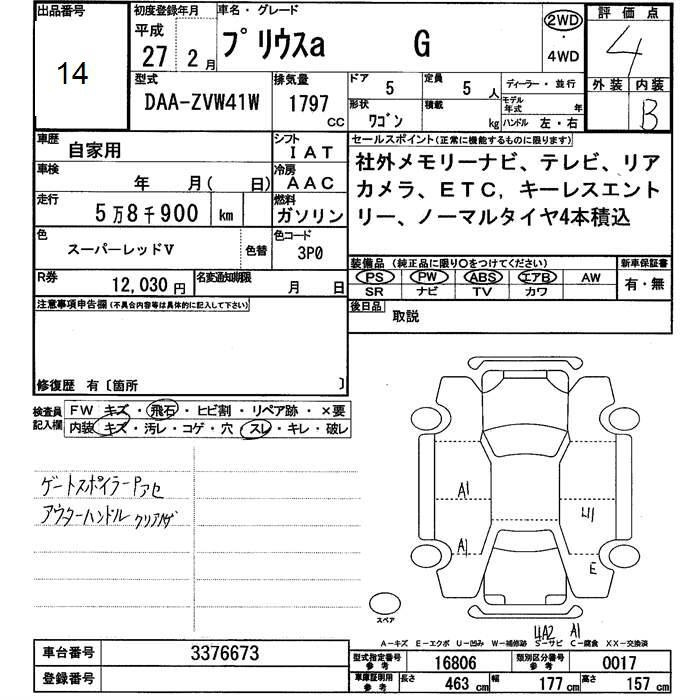 出品番号
14
初度登録年月
平成
27 年 2 月
車名・グレード
プリウスa G
2WD
・
4WD
評価点
4
外装 内装
B
型式
DAA-ZVW41W
排気量
1797
CC
ドア 5
定員 5 人
ディーラー・並行
形状 ワゴン
積載 kg
モデル年式 年
ハンドル 左・右
車歴
自家用
シフト
IAT
車検
年 月( 日)
冷房
AAC
走行
5万8千900 km
燃料
ガソリン
色
スーパーレッドV
色替
色コード
3P0
R券
12,030 円
名変通知期限
月 日
セールスポイント(正常に機能するものに限ります)
社外メモリーナビ、テレビ、リア
カメラ、ETC, キーレスエント
リー、ノーマルタイヤ4本積込
装備品 (純正品に限り〇をつけてください)
新車保証書
PS PW ABS エアB AW
有・無
SR ナビ TV カワ
後日品
取説
注意事項申告欄(不具合内容等は具体的に記入して下さい)
修復歴 有〔箇所 〕
検査員
記入欄
FW キズ・飛石・ヒビ割・リペア跡・×要
内装・キズ・汚レ・コゲ・穴・スレ・キレ・破レ
ゲートスポイラーPアセ
アウターハンドル クリアハゲ
A1
A1
E
スペア
A2 A1
A-キズ E-エクボ U-凹み W-補修跡 S-サビ C-腐食 XX-交換済
車台番号
3376673
登録番号
型式指定番号
参考
16806
類別区分番号
参考
0017
車庫証明用
参考
長さ 463 cm
幅 177 cm
高さ 157 cm